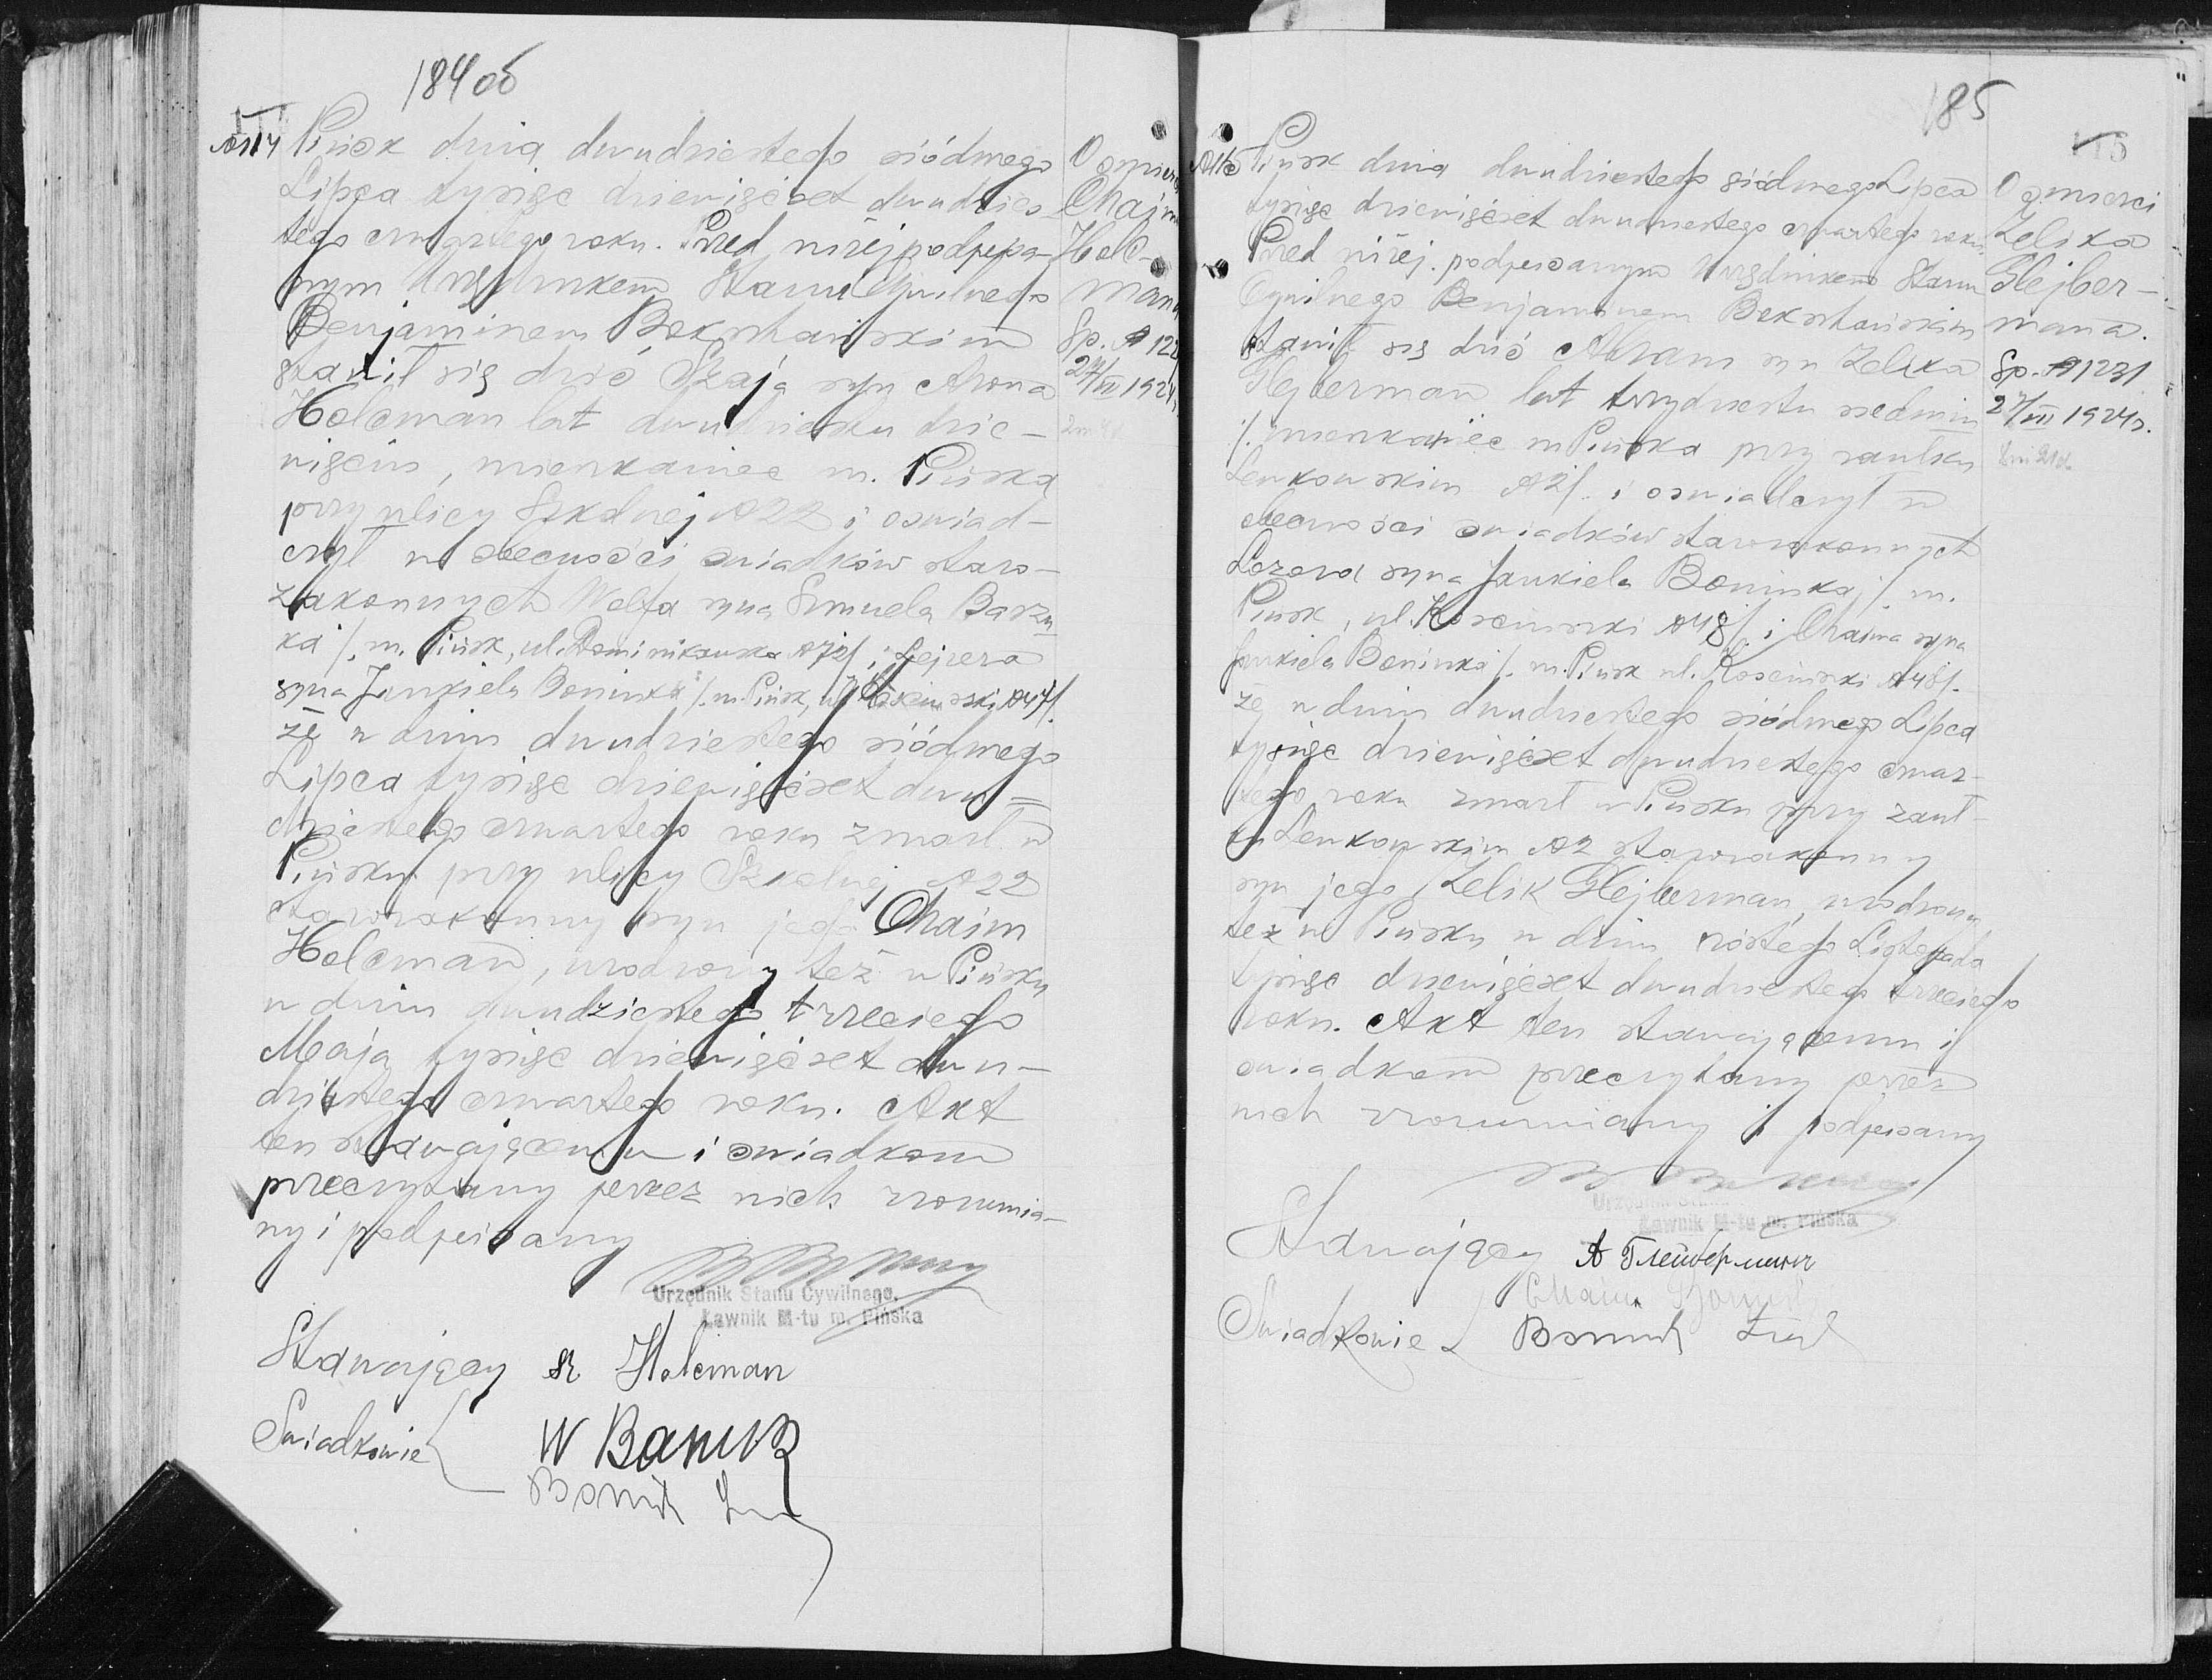 184 об
№ 114
Pińsk dnia dwudziestego siódmego
Lipca tysiąc dziewięćset dwudzies-
tego czwartego roku. Przed niżej podpisa-
nym Urzędnikem Stanu Cywilnego
Benjaminem Bokshańskim
stawił się dziś Szaja syn Arona
Holcman lat dwudziestu dzie-
więciu, mieszkaniec m. Pińska
przy ulicy Szkolnej № 22 i oswiad-
czył w obecności swiadków staro-
zakonnych Welfa syna Szmuela Barzu
ka /. m. Pińsk, ul. Dominikańska № 72/. i Lejzera
syna Jankiela Boninka /. m. Pińsk, ul. № 47/.
że w dniu dwudziestego siódmego
Lipca tysiąc dziewięćset dwu=
dziestego czwartego roku zmarł w
Pińsku przy ulicy Szkolnej № 22
starozakonny syn jego Chaim
Holcman, urodzony też w Pińsku
w dniu dwudziestego trzeciego
Maja tysiąc dziewięćset dwu-
dziestego czwartego roku. Akt
ten stawającemu i swiadkom
przeczytany przez nich zrozumia-
ny i podpisany
Urzędnik Stanu Cywilnego,
Ławnik M-tu m. Pińska
Stawający Holcman
Swiadkowie W
Bonik
O smierci
Chajma
Holc-
mana
Sp. № 122
27/VII 1924
185
115
Pińsk dnia dwudziestego siódmego Lipca
tysiąc dziewięćset dwudziestego czwartego roku.
Przed niżej podpisanym Urzędnikem Stanu
Cywilnego Benjaminem Bokshańskim
stawił się dziś Abram syn Zelika
Glejberman lat trzydziestu siedmiu
/. mieszkaniec m. Pińska przy zaułku
Lenkowskim № 2/. i oswiadczył w
obecności swiadków starozakonnych
Lozera syna Jankiela Boninka /. m.
Pińsk, ul. Kosciuszki № 48/. i Chaima syna
Jankiela Boninka /. m. Pińsk ul. Kosciuszki № 48/.
że w dniu dwudziestego siódmego Lipca
tysiąc dziewięćset dwudziestego czwar-
tego roku zmarł w Pińsku przy zauł-
ku Lenkowskim № 2 starozakonny
syn jego Zelik Glejberman, urodzony
też w Pińsku w dniu szóstego Listopada
tysiąc dziewięćset dwudziestego trzeciego
roku. Akt ten stawającemu i
swiadkom przeczytany przez
nich zrozumiany i podpisany
Ławnik M-tu m. Pińska
Stawający А Глейберман
Swiadkowie Bonik
O smierci
Zelika
Glejber-
mana.
Sp. № 1231
27/VII 1924 r.